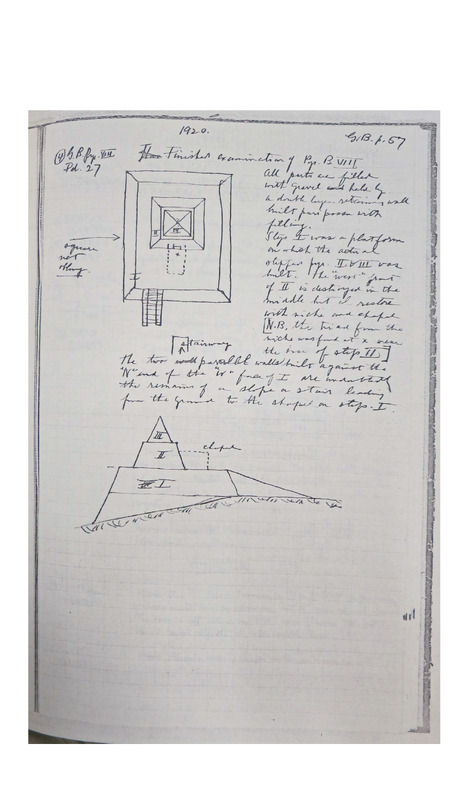 1920.
G.B. p. 57
G.B. Py. VIII
Pd. 27
II Finished examination of Pyr. B. VIII
All parts are filled
with gravel and held by
a double layer retaining wall
built pari passu with
filling.
Step I was a platform
on which the actual
stepped pyr. II & III was
built. The "west" part
of II is destroyed in the
middle but I restore
with niche and chapel
[N.B. the triad from the
niche was found at x near
the base of step II.]
square
not
oblong
II
III
x
stairway
The two parallel walls built against the
"N" end of the "W" face of I are undoubtedly
the remains of a slope or stair leading
from the ground to the chapel on step I.
III
II
chapel
I